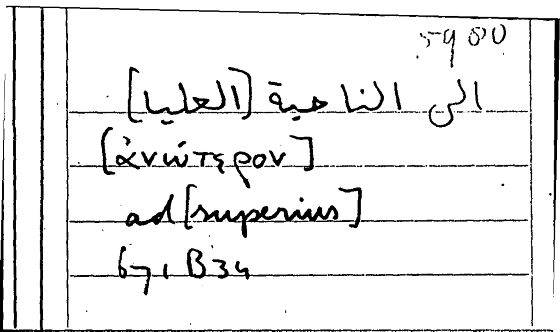 5980
الى الناحية [العليا]
[ἀνώτερον]
ad [superius]
671 B 34